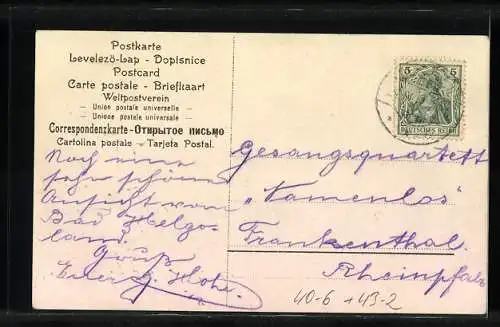 Postkarte
Levelezö-Lap - Dopisnice
Postcard
Carte postale - Briefkaart
Weltpostverein
— Union postale universelle —
— Unione postale universale —
Correspondenzkarte - Открытое письмо
Cartolina postale - Tarjeta Postal.
5 5
DEUTSCHES REICH
Noch eine
sehr schöne
Ansicht vom
Bad Helgo-
land.
Gruß
Euer
Gesangsquartett
„Namenlos"
Frankenthal.
Rheinpfalz
40-6 + 43-2